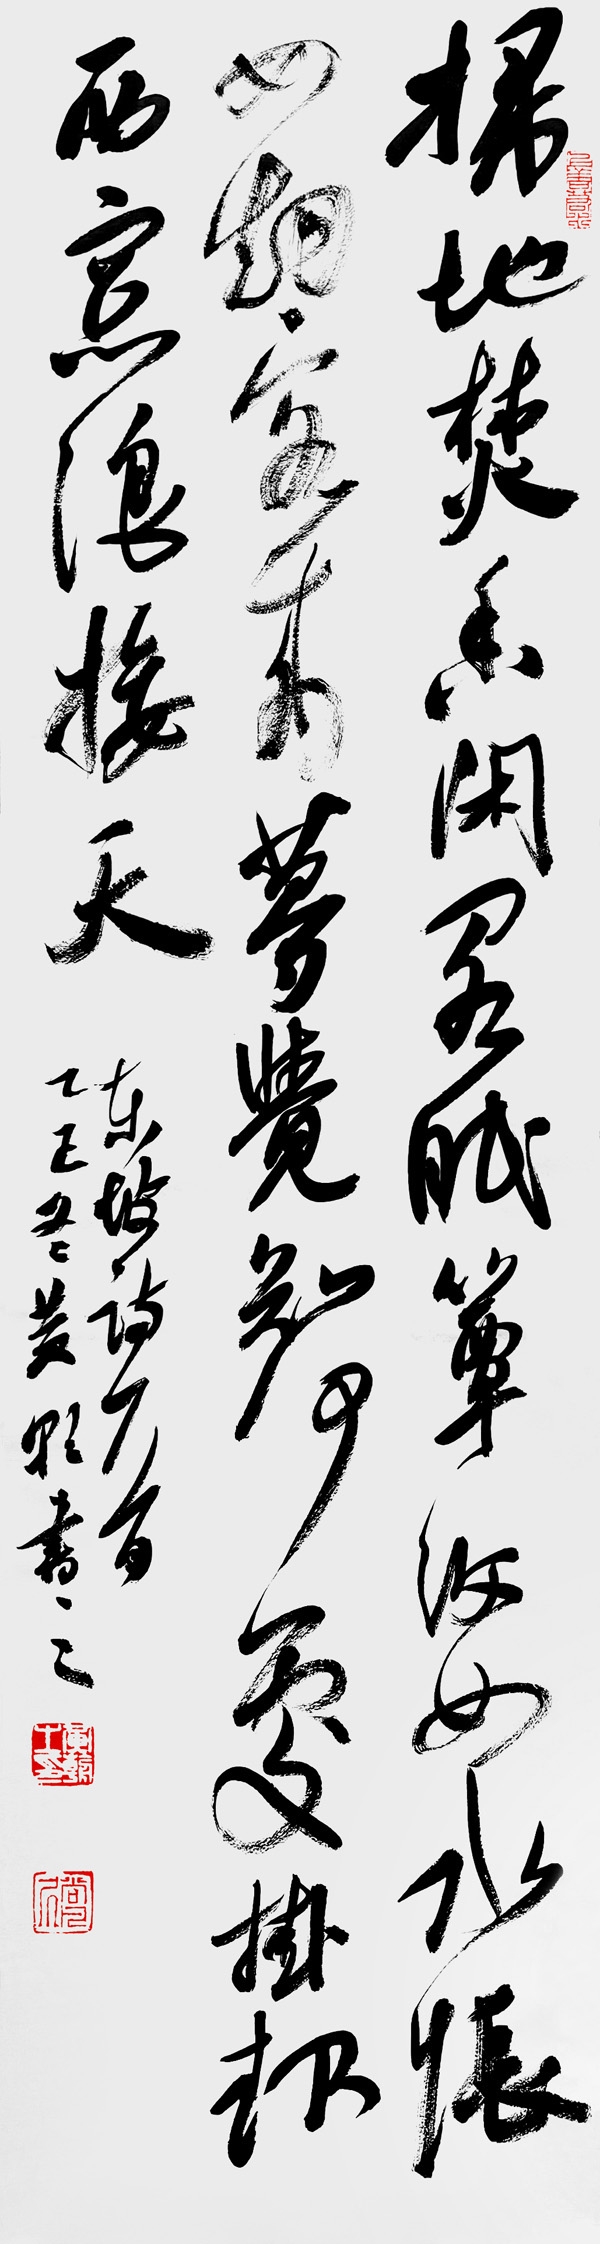 掃地焚香閉閣眠簟紋如水帳
如烟客來夢覺知何處掛起
西窓浪接天
东坡詩一首
乙巳冬書之